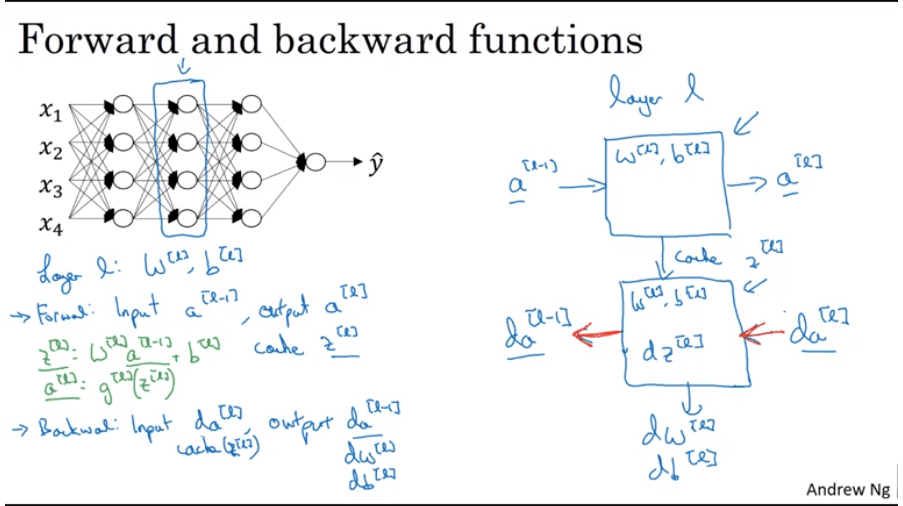 Forward and backward functions
x₁
x₂
x₃
x₄
ŷ
Layer l: W^[l], b^[l]
→ Forward: Input a^[l-1], output a^[l]
z^[l]: W^[l] a^[l-1] + b^[l]
cache z^[l]
a^[l]: g^[l](z^[l])
→ Backward: Input da^[l], output da^[l-1]
cache(z^[l])
dW^[l]
db^[l]
layer l
a^[l-1] → W^[l], b^[l] → a^[l]
cache z^[l]
W^[l], b^[l]
da^[l-1] ← dz^[l] ← da^[l]
dW^[l]
db^[l]
Andrew Ng